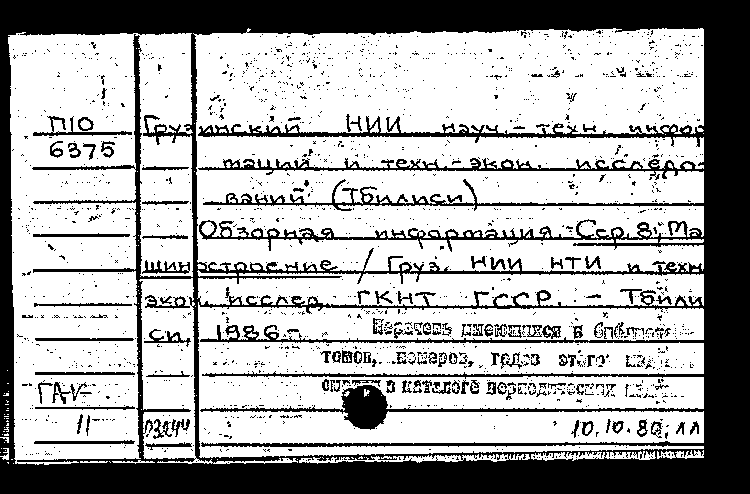 П10 Грузинский НИИ науч.-техн. инфор
6375 таций и техн.-экон. исследо-
ваний (Тбилиси)
Обзорная информация. Сер. 8, Ма
шиностроение / Груз. НИИ НТИ и техн
экон. исслед. ГКНТ ГССР. - Тбили
си, 1986 -
Перечень имеющихся в библиоте
томов, номеров, годов этого
в каталоге периодических
ГАУ
11 10.10.80